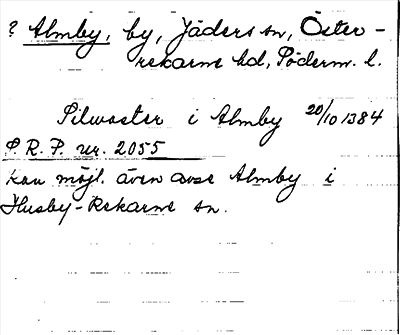 ? Almby, by, Jäders sn, Öster-
rekarne hd, Söderm. l.
Pilwaster i Almby 20/10 1384
S. R. P. nr. 2055
kan möjl. även avse Almby i
Husby-Rekarne sn.